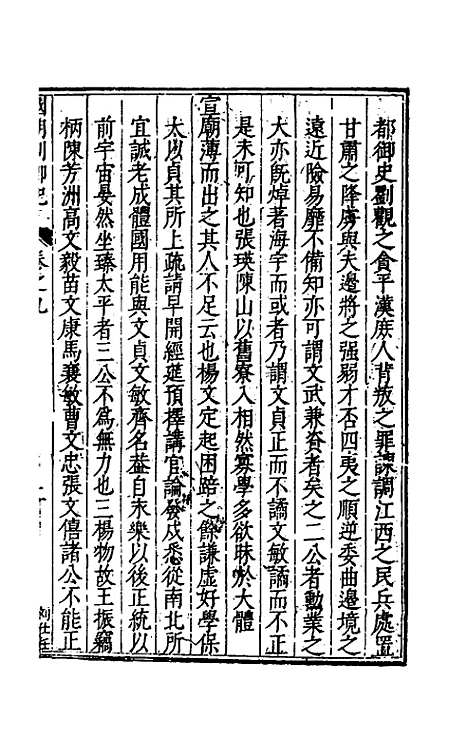 都御史劉觀之貪平漢庶人背叛之罪諫調江西之民兵處置
甘肅之降虜與夫邊將之强弱才否四夷之順逆委曲邊境之
遠近險易靡不備知亦可謂文武兼資者矣之二公者勳業之
大亦旣焯著海宇而或者乃謂文貞正而不譎文敏譎而不正
是未可知也張瑛陳山以舊寮入相然寡學多欲昧於大體
宣廟薄而出之其人不足云也楊文定起困踣之餘謙虛好學保
太以貞其所上疏請早開經筵預擇講官論發戍悉從南北所
宜誠老成體國用能與文貞文敏齊名葢自永樂以後正統以
前宇宙晏然坐臻太平者三公不爲無力也三楊物故王振竊
柄陳芳洲高文毅苗文康馬襄敏曹文忠張文僖諸公不能正
國朝列卿紀
卷之九